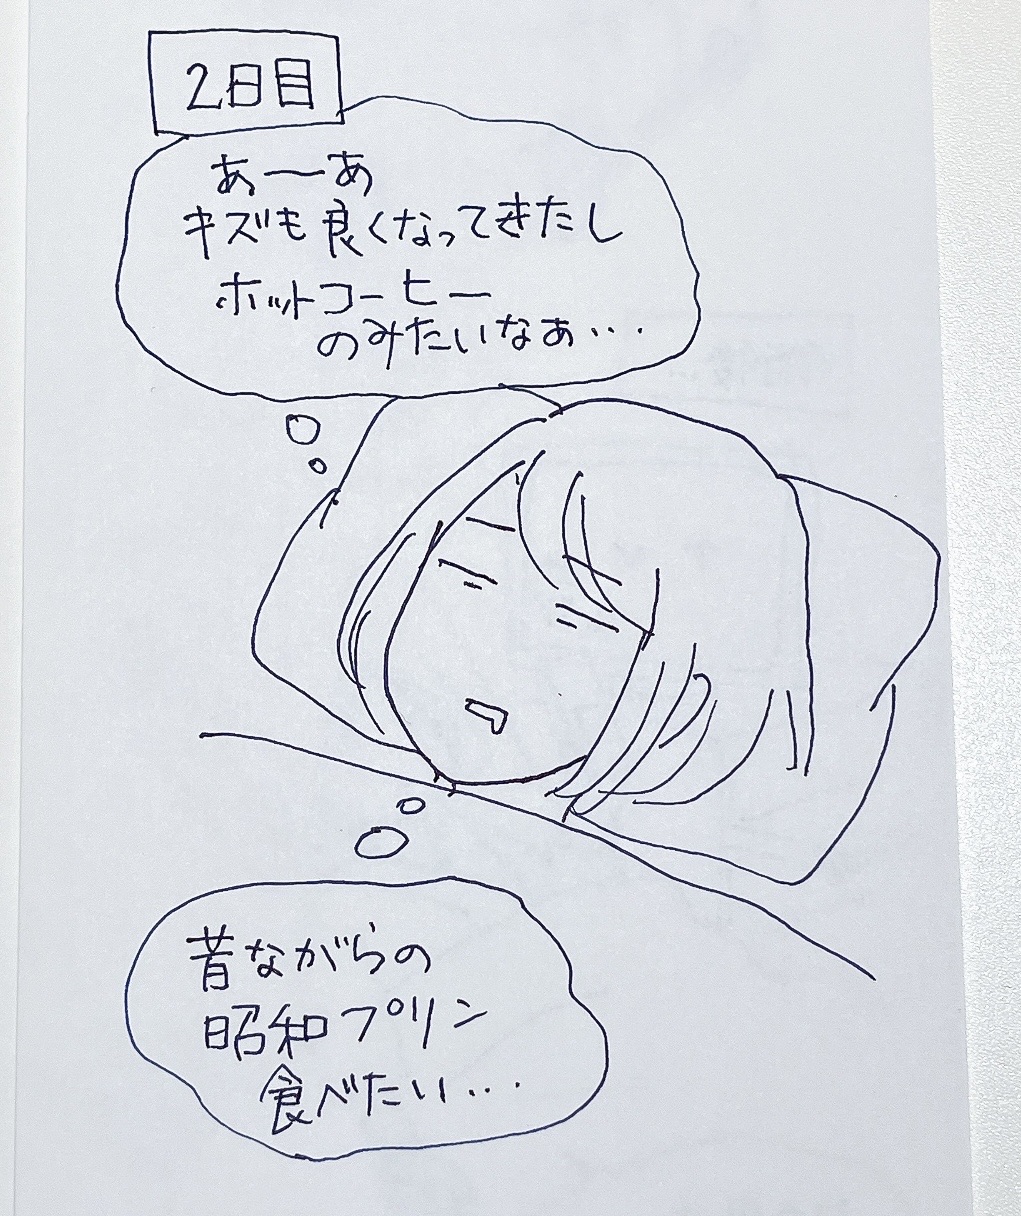 2日目
あーあ
キズも良くなってきたし
ホットコーヒー
のみたいなぁ…
昔ながらの
昭和プリン
食べたい…